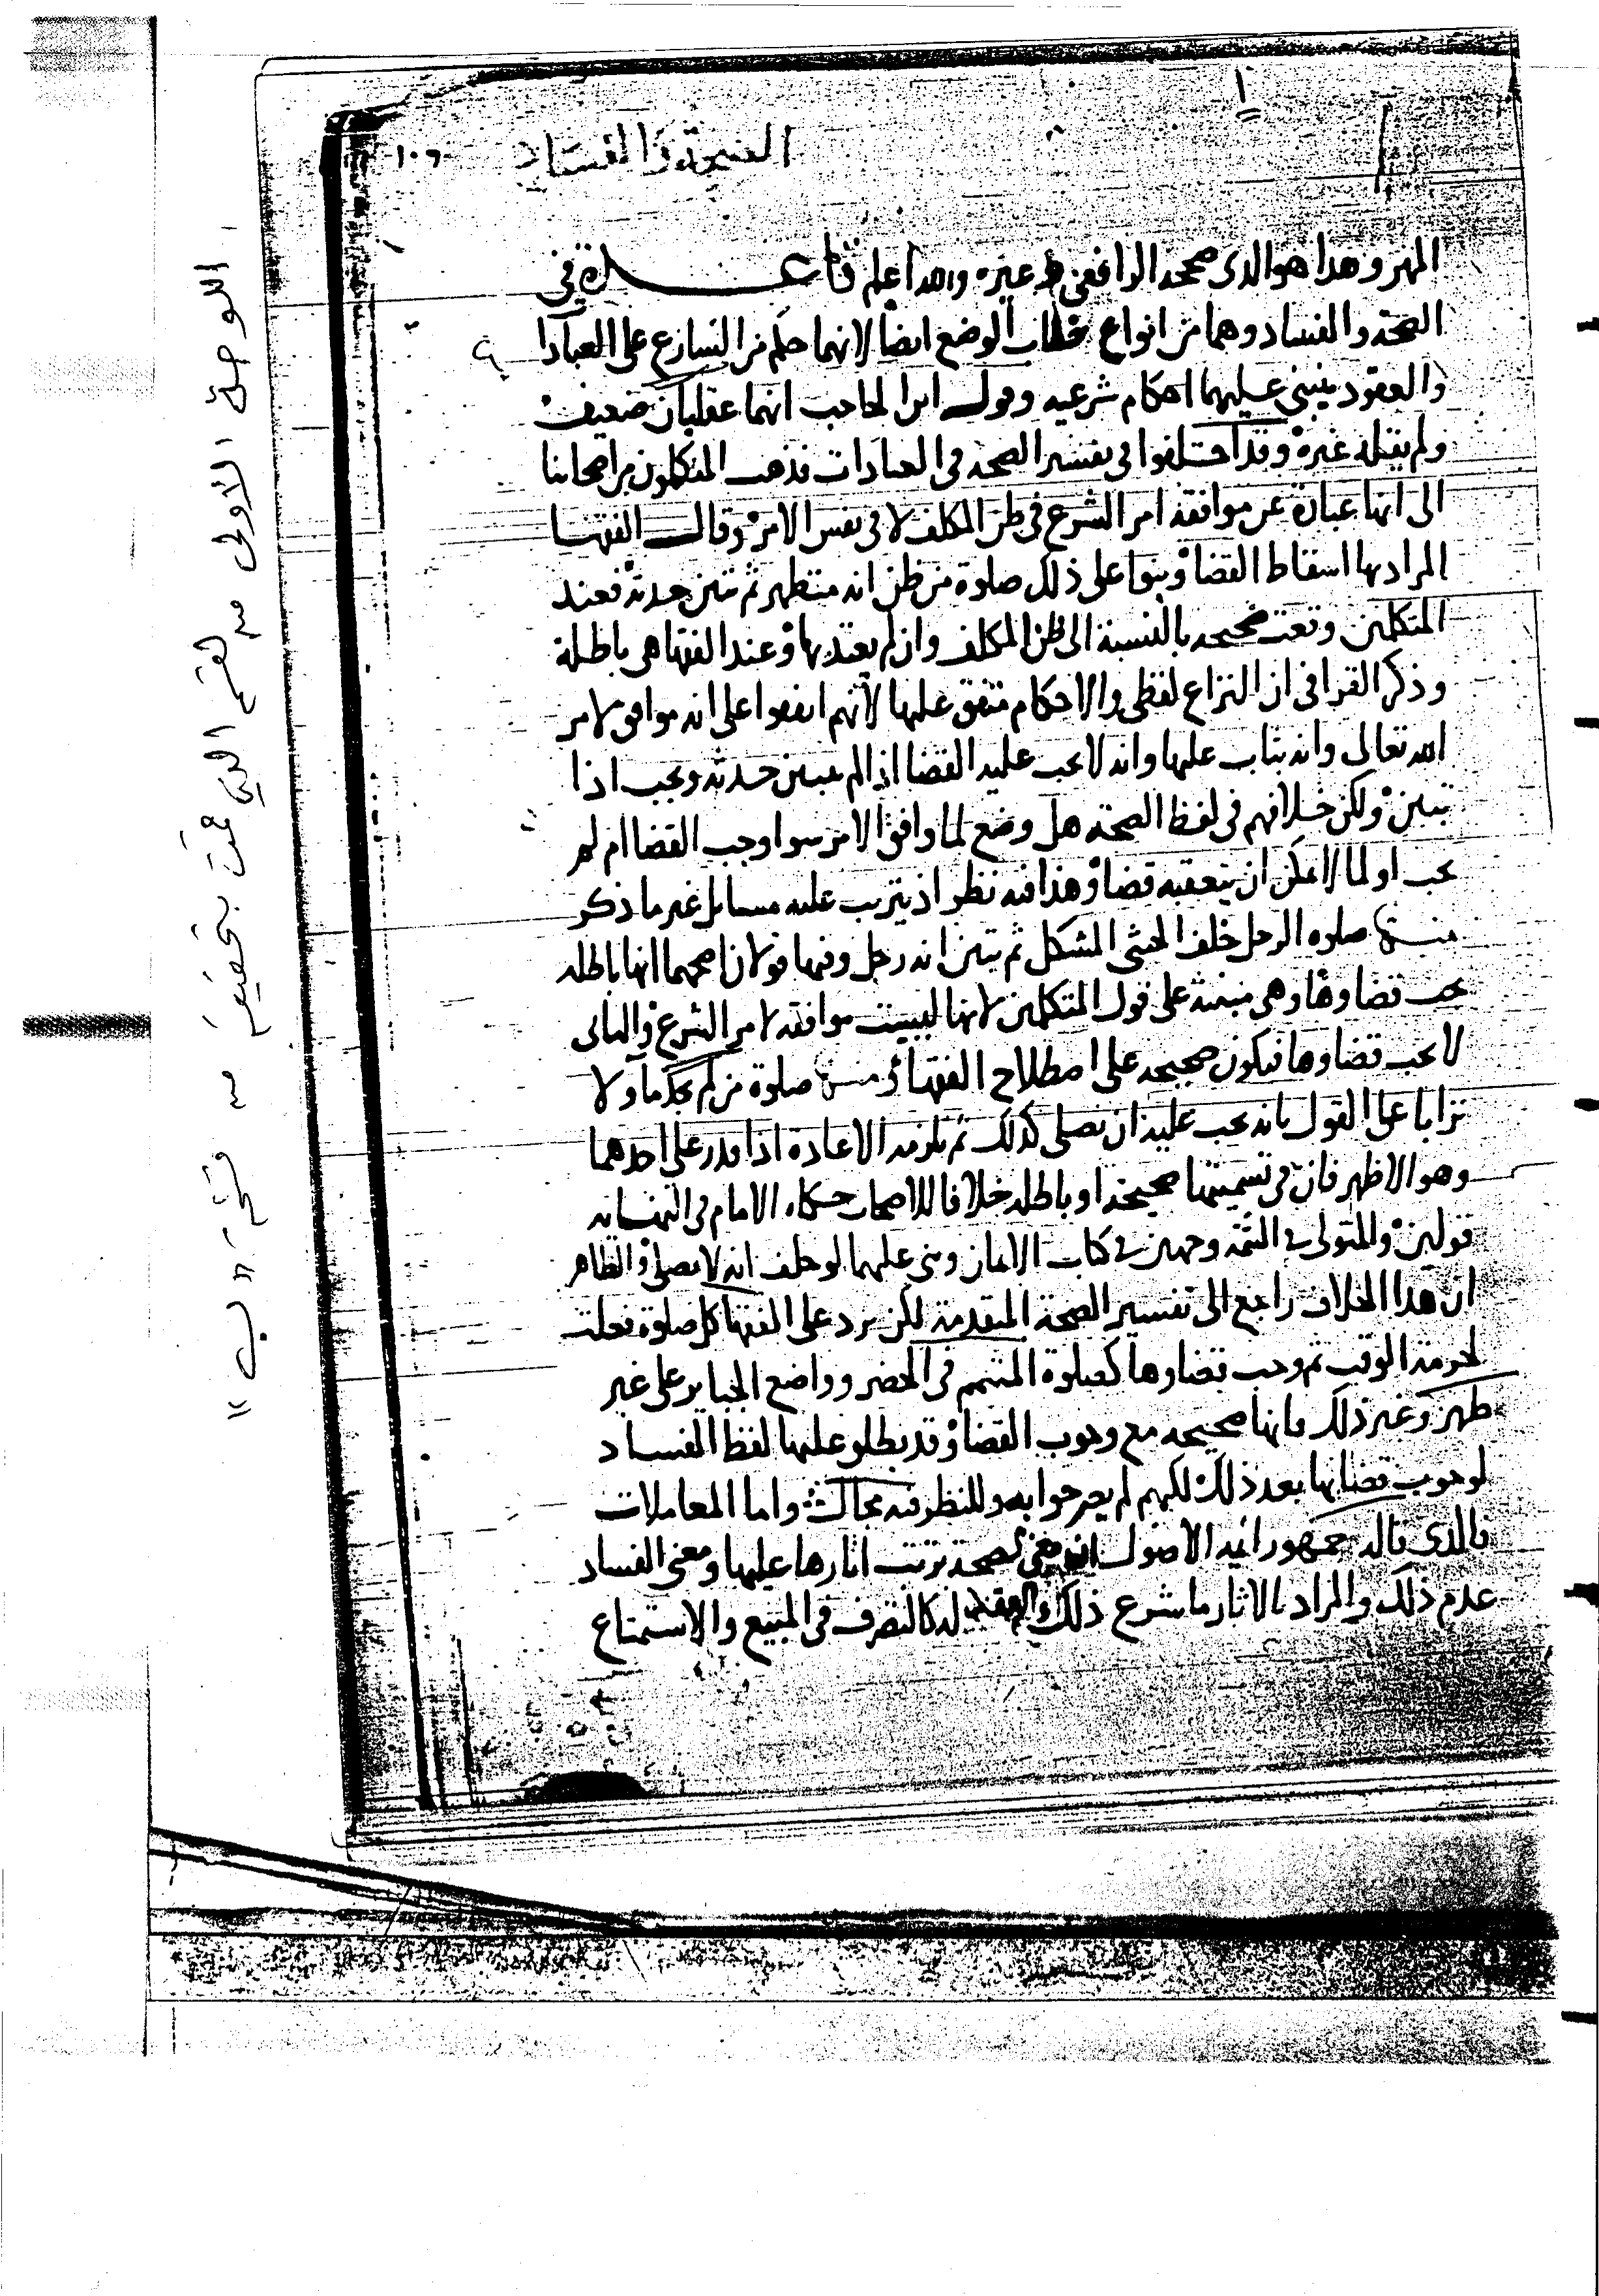 الصحة والفساد
١٠٦
المهر وهذا هو الذى صححه الرافعى وغيره والله أعلم قاعدة فى
الصحة والفساد وهما من انواع خطاب الوضع ايضا لانهما حكم من الشارع على العبادات
والعقود ينبنى عليهما احكام شرعيه وقول ابن الحاجب انهما عقليان ضعيف
ولم يقله غيره وقد اختلفوا فى تفسير الصحه فى العبادات فذهب المتكلمون من اصحابنا
الى انها عبارة عن موافقة امر الشرع فى ظن المكلف لا فى نفس الامر وقال الفقها
المراد بها اسقاط القضا وبنوا على ذلك صلوة من ظن انه متطهر ثم تبين حدثه فعند
المتكلمين وقعت صحيحه بالنسبة الى ظن المكلف وان لم يعتد بها وعند الفقها هى باطلة
وذكر القرافى ان النزاع لفظى والاحكام متفق عليها لانهم اتفقوا على انه موافق لامر
الله تعالى وانه يثاب عليها وانه لا يجب عليه القضا اذا لم يتبين حدثه ويجب اذا
تبين ولكن خلافهم فى لفظ الصحة هل وضع لما وافق الامر سوا وجب القضا ام لم
يجب او لما لا يمكن ان يتعقبه قضا وهذا فيه نظر اذ يترتب عليه مسايل غير ما ذكر
منها صلوه الرجل خلف الخنثى المشكل ثم تبين انه رجل وفيها قولان اصحهما انها باطله
يجب قضاوها وهى مبنية على قول المتكلمين لانها ليست موافقه لامر الشرع والثانى
لا يجب قضاوها فيكون صحيحه على اصطلاح الفقها ومنها صلوة من لم يجد ما ولا
ترابا على القول بانه يجب عليه ان يصلى كذلك ثم يلزمه الاعادة اذا قدر على احدهما
وهو الاظهر فان فى تسميتها صحيحة او باطله خلافا للاصحاب حكاه الامام فى النهايه
قولين والمتولى فى التتمه وجهين فى كتاب الايمان وبنى عليهما لو حلف انه لا يصلى والظاهر
ان هذا الخلاف راجع الى تفسير الصحة المتقدمة لكن يرد على الفقها كل صلوة فعلت
لحرمة الوقت ثم وجب قضاوها كصلوة المتيمم فى الحضر وواضع الجباير على غير
طهر وغير ذلك فانها صحيحه مع وجوب القضا وقد يطلق عليها لفظ الفساد
لوجوب قضايها بعد ذلك لكنهم لم يصرحوا به وللنظر فيه مجال واما المعاملات
فالذى قاله جمهور ائمه الاصول ان معنى الصحة ترتب اثارها عليها ومعنى الفساد
عدم ذلك والمراد بالاثار ما شرع ذلك العقد له كالتصرف فى المبيع والاستمتاع
اللوحة الأولى من القسم الذي قمت بتحقيقه من نسخة "ب"